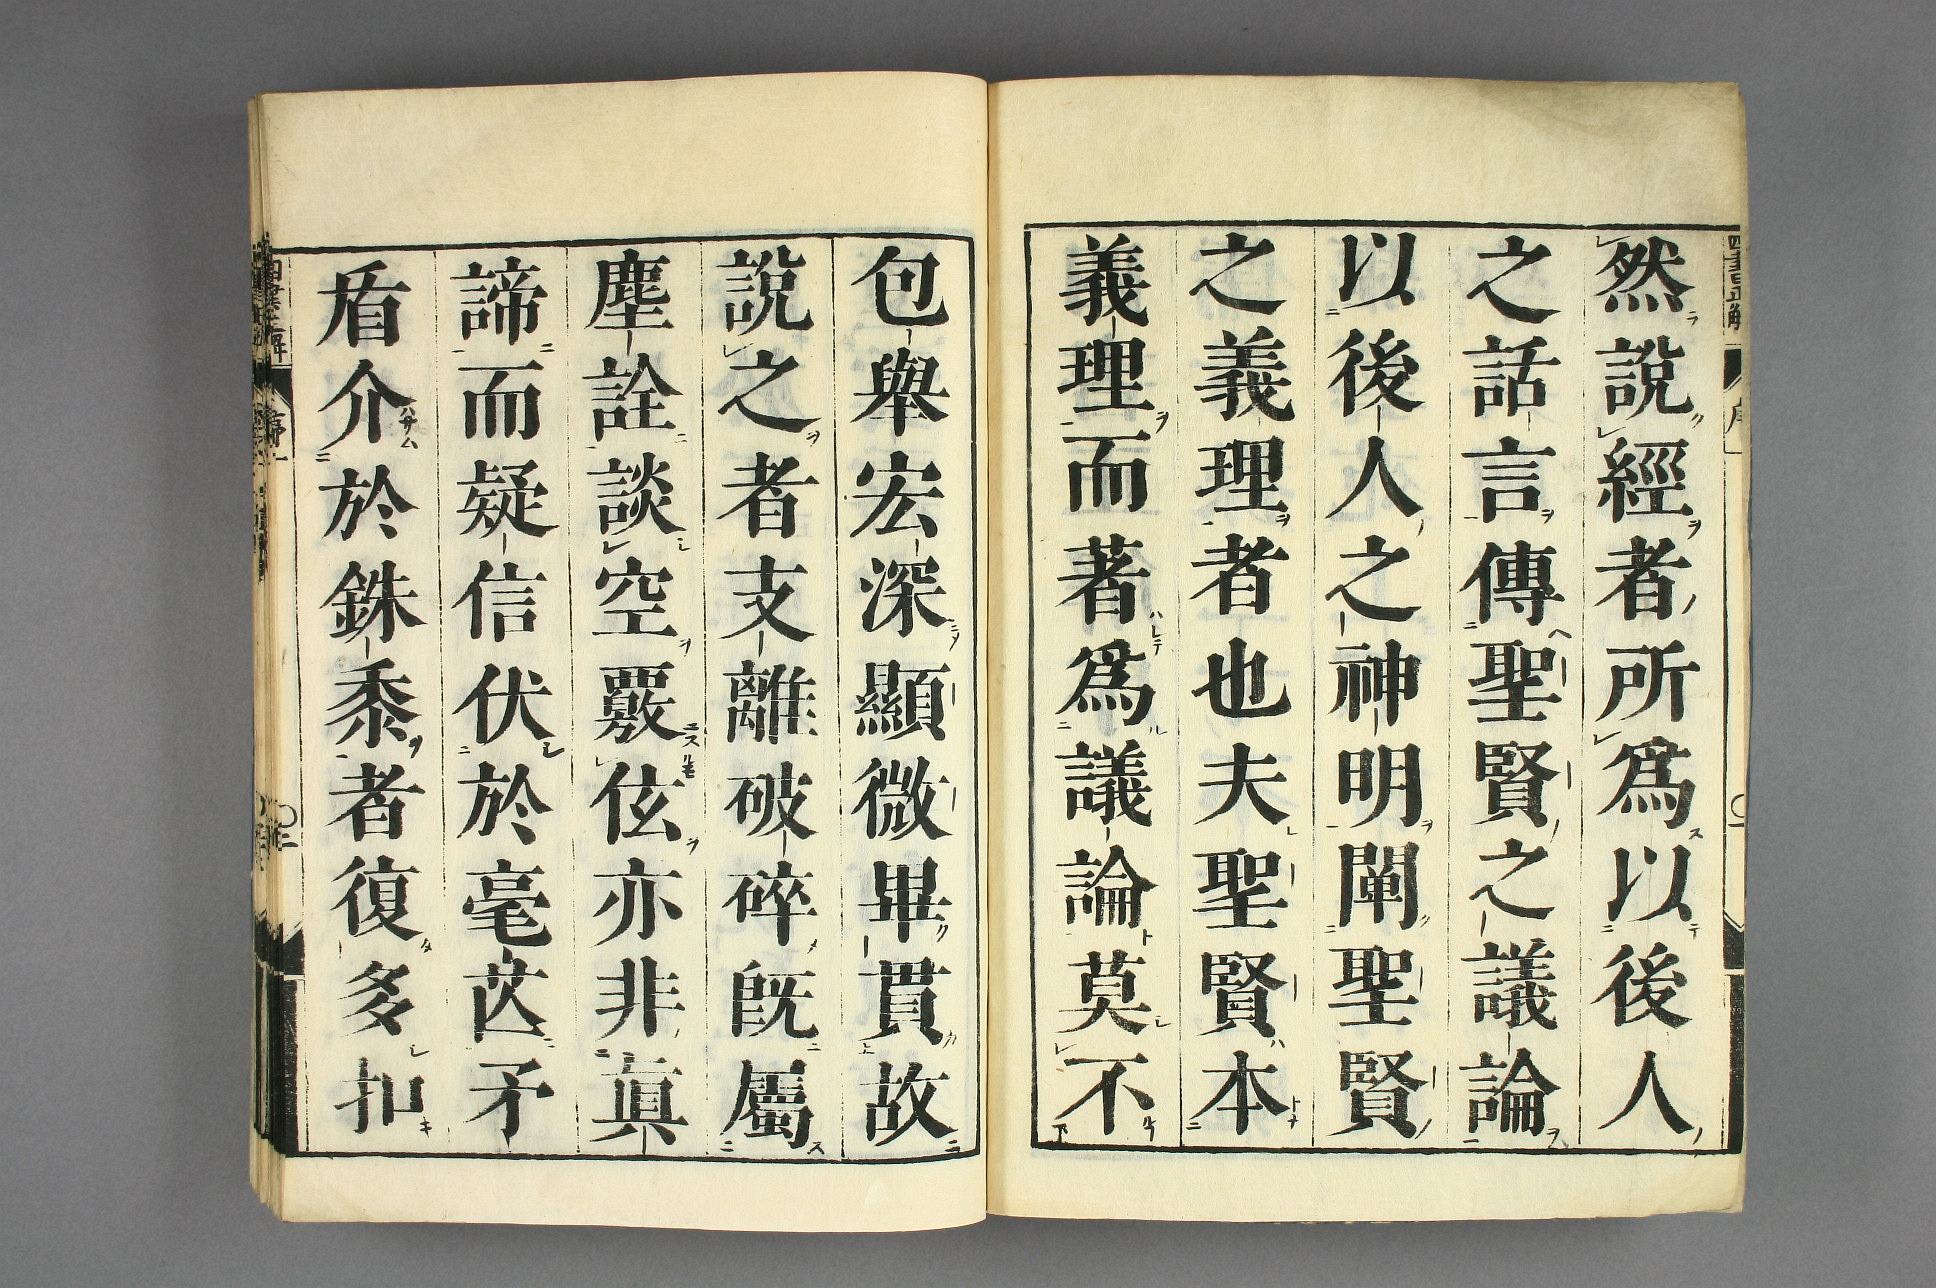 四書正解
序
然說經者所爲以後人
之話言傳聖賢之議論
以後人之神明闡聖賢
之義理者也夫聖賢本
義理而著爲議論莫不
包舉宏深顯微畢貫故
說之者支離破碎旣屬
塵詮談空覈伭亦非眞
諦而疑信伏於毫芒矛
盾介於銖黍者復多扣